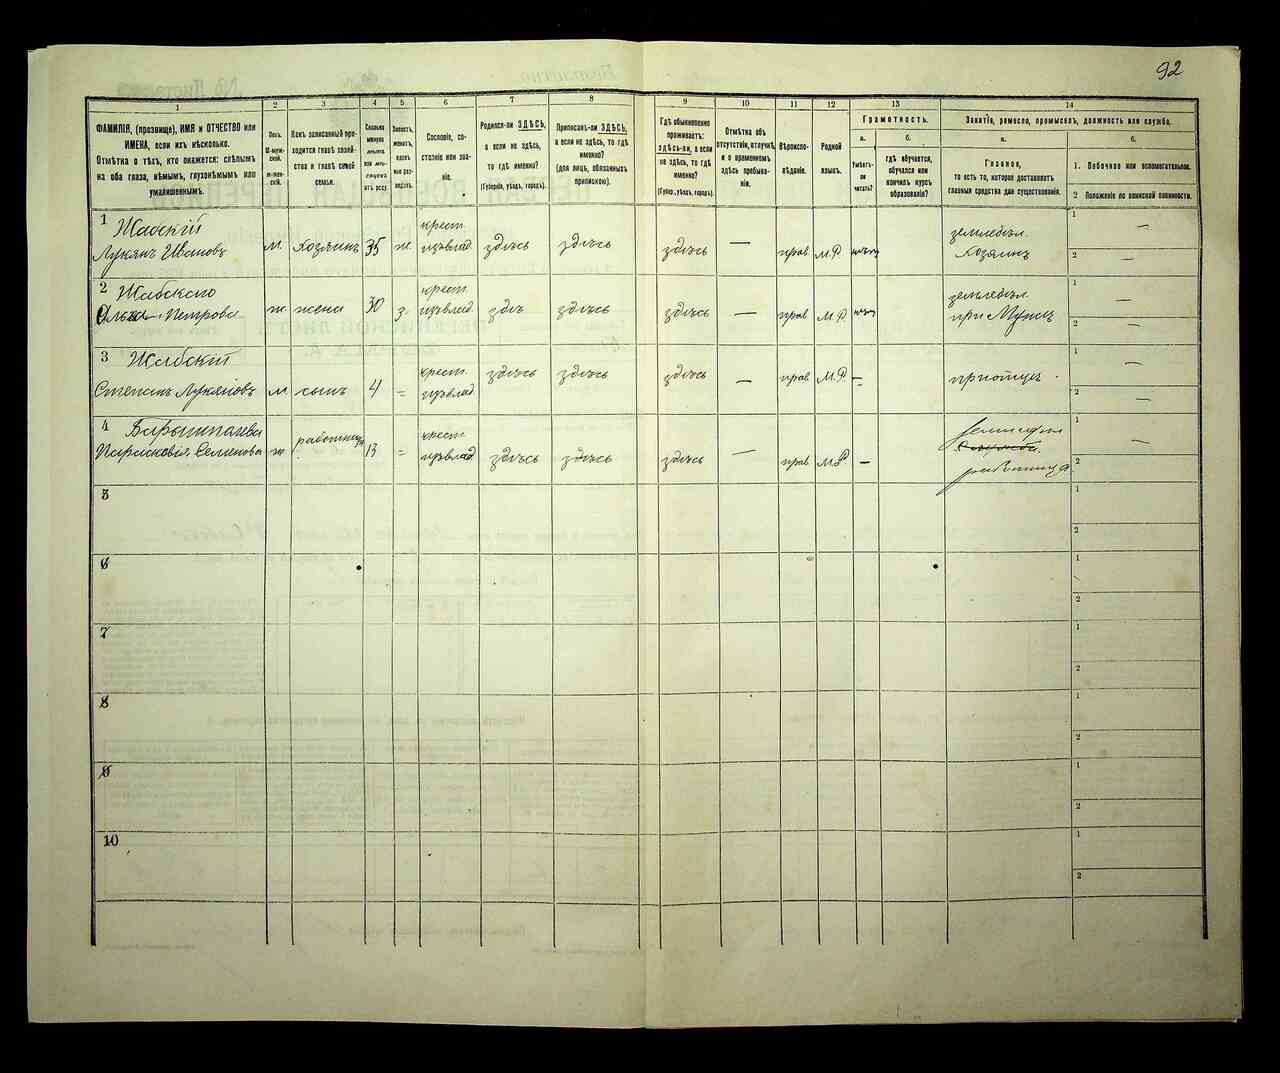 92
1 2 3 4 5 6 7 8 9 10 11 12 13 14
ФАМИЛІЯ, (прозвище), ИМЯ и ОТЧЕСТВО или
ИМЕНА, если ихъ нѣсколько.
Отмѣтка о тѣхъ, кто окажется: слѣпымъ
на оба глаза, нѣмымъ, глухонѣмымъ или
умалишеннымъ.
Полъ.
М-муж-
ской.
ж-жен-
скій.
Какъ записанный при-
ходится главѣ хозяй-
ства и главѣ своей
семьи.
Сколько
минуло
лѣтъ
или мѣ-
сяцевъ
отъ роду.
Холостъ,
женатъ,
вдовъ
или раз-
веденъ.
Сословіе, со-
стояніе или зва-
ніе.
Родился-ли ЗДѢСЬ,
а если не здѣсь,
то гдѣ именно?
(Губернія, уѣздъ, городъ).
Приписанъ-ли ЗДѢСЬ,
а если не здѣсь, то гдѣ
именно?
(для лицъ, обязанныхъ
припискою).
Гдѣ обыкновенно
проживаетъ:
здѣсь-ли, а если
не здѣсь, то гдѣ
именно?
(Губер., уѣздъ, городъ).
Отмѣтка объ
отсутствіи, отлучкѣ
и о временномъ
здѣсь пребыва-
ніи.
Вѣроиспо-
вѣданіе.
Родной
языкъ.
Грамотность.
а. б.
Умѣетъ-
ли
читать?
гдѣ обучается,
обучался или
кончилъ курсъ
образованія?
Занятіе, ремесло, промыселъ, должность или служба.
а. б.
Главное,
то есть то, которое доставляетъ
главныя средства для существованія.
1. Побочное или вспомогательное.
2 Положеніе по воинской повинности.
1 Жабскій
Лукянъ Ивановъ м хозяинъ 35 ж крест. здѣсь здѣсь здѣсь — прав М.Р земледѣл. хозяинъ 1 — 2 —
2 Жабскаго
Петрова ж жена 30 з. крест. здѣсь здѣсь — прав М.Р земледѣл. при 1 — 2 —
3 Жабскій
Степанъ Лукяновъ м сынъ 4 = крест. здѣсь здѣсь здѣсь — прав М.Р. — при отцѣ. 1 — 2 —
4
Парасковія Семенова ж работница 13 = крест. здѣсь здѣсь здѣсь — прав М.Р — работница 1 — 2
5 1 2
6 1 2
7 1 2
8 1 2
9 1 2
10 1 2